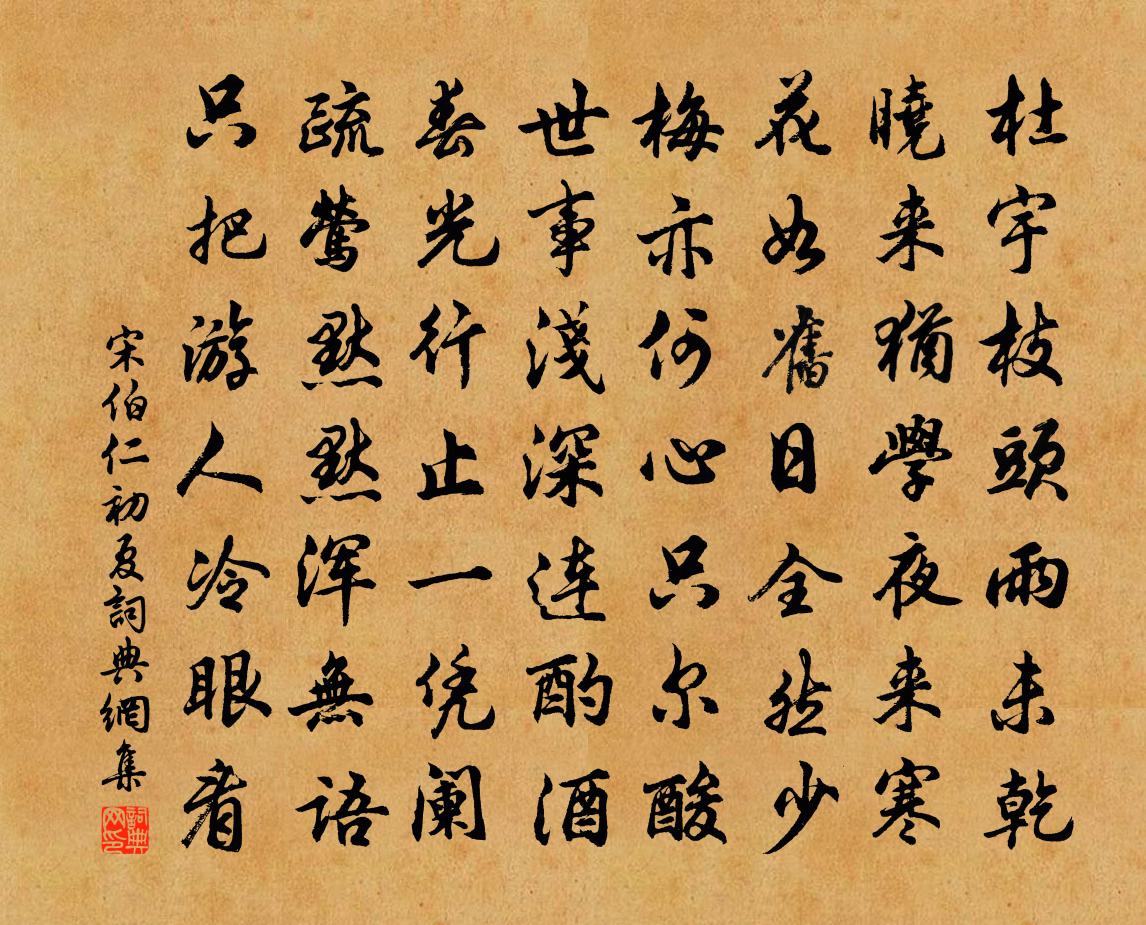 杜宇枝頭雨未乾
曉来猶學夜来寒
花如舊日全然少
梅亦何心只尔酸
世事淺深連酌酒
春光行止一凭阑
疏鶯默默浑無語
只把游人冷眼看
宋伯仁初夏詞典網集
詞典网印